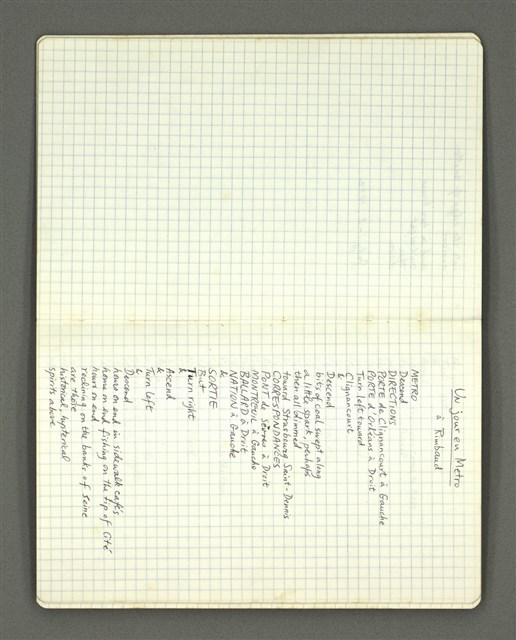 Un jour en Metro
à Rimbaud
METRO
Descend
DIRECTIONS
PORTE de Clignancourt à Gauche
PORTE d'Orléans à Droit
Turn left toward
Clignancourt
&
Descend
bits of coal swept along
a little spark, perhaps
then all dimmed
toward Strasbourg Saint-Dennis
CORRESPONDANCES
PONT de Sèvres à Droit
MONTREUIL à Gauche
BALLARD à Droit
NATION à Gauche
&
SORTIE
But
Turn right
&
Ascend
&
Turn left
&
Descend
hours on end in sidewalk cafés
hours on end fishing on the tip of Cité
hours on end
reclining on the banks of Seine
are those
historical, hysterical
spirits above